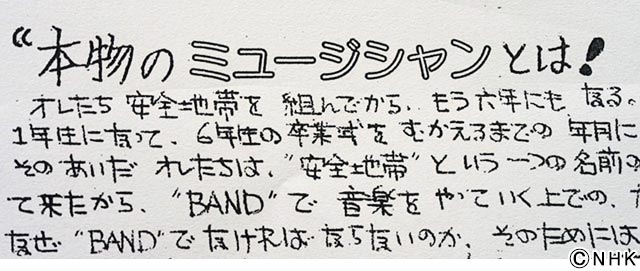 “本物のミュージシャンとは！
オレたち安全地帯を組んでから、もう六年にもなる。
1年生になって、6年生の卒業式をむかえるまでの年月に
そのあいだオレたちは、“安全地帯”という一つの名前の
て来たから、“BAND”で音楽をやっていく上での、
なぜ“BAND”でなければならないのか、そのためには
©NHK